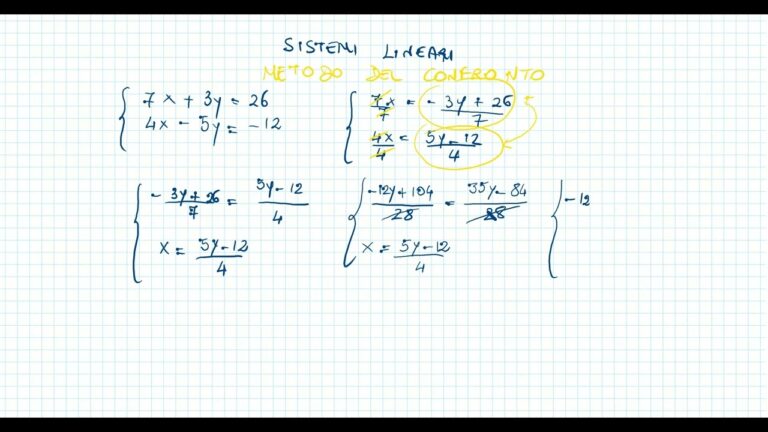 SISTEMI LINEARI
METODO DEL CONFRONTO
{ 7x + 3y = 26
4x - 5y = -12
{ 7x/7 = (-3y + 26)/7
4x/4 = (5y - 12)/4
{ (-3y + 26)/7 = (5y - 12)/4
x = (5y - 12)/4
{ (-12y + 104)/28 = (35y - 84)/28
x = (5y - 12)/4
{ -12